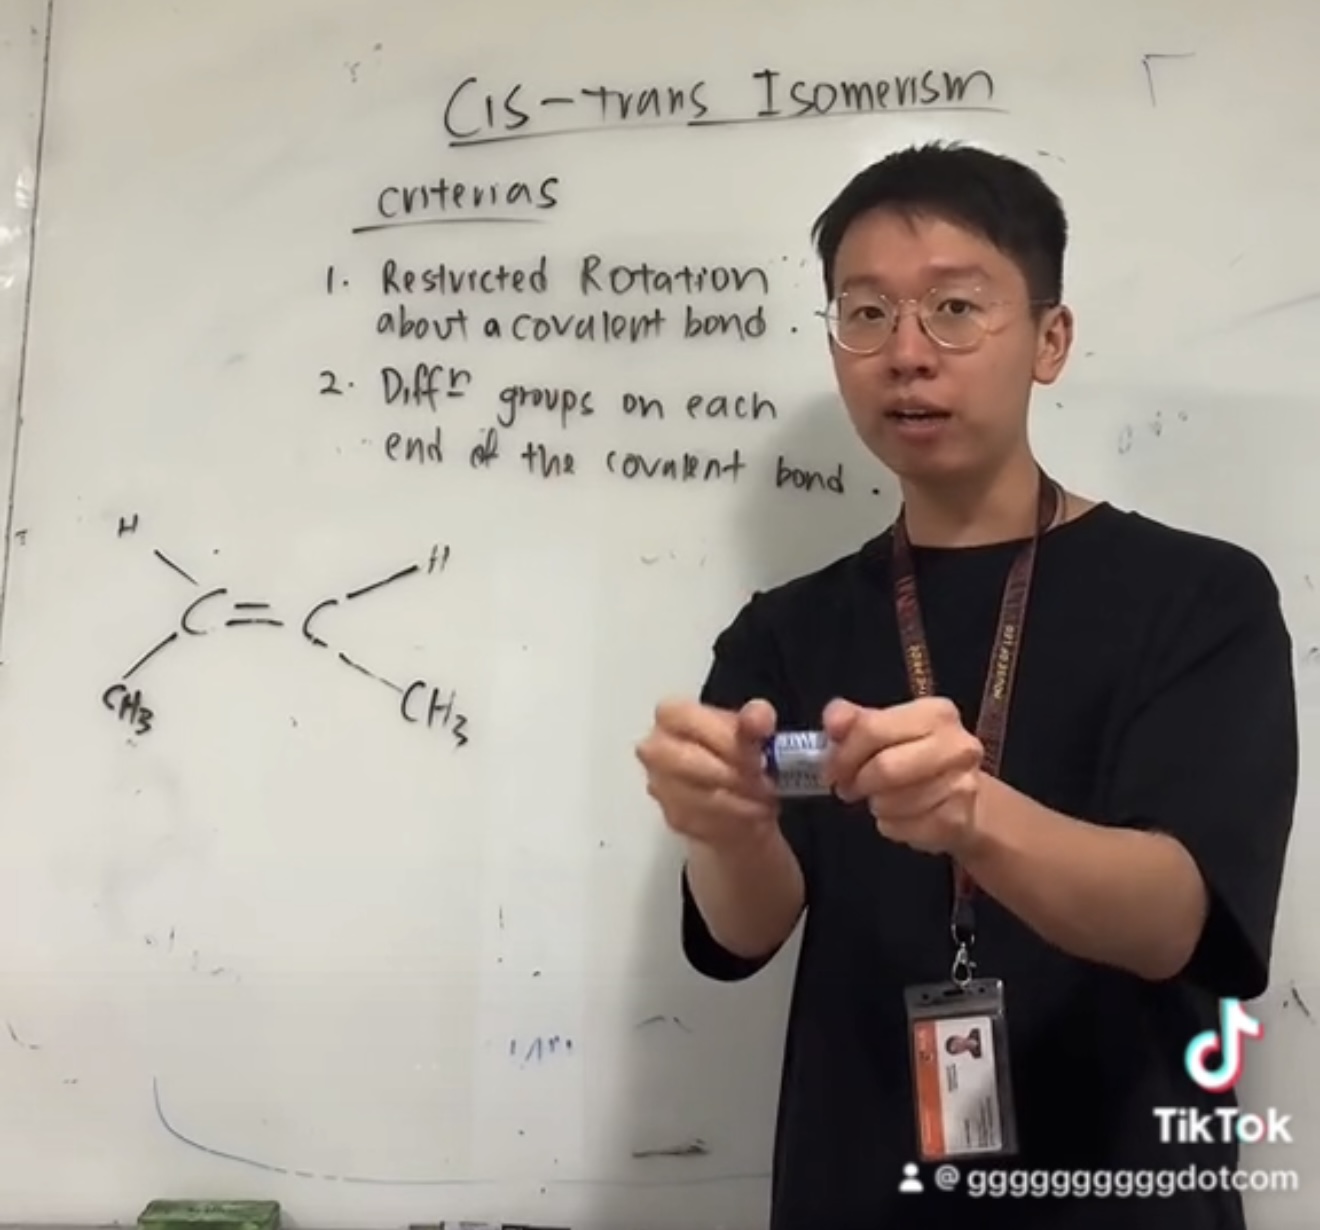 Cis-trans Isomerism
criterias
1. Restricted Rotation
about a covalent bond.
2. Diffn groups on each
end of the covalent bond.
H
H
C=C
CH3
CH3
THE PRIDE
HOUSE OF LEO
TikTok
@ggggggggggdotcom